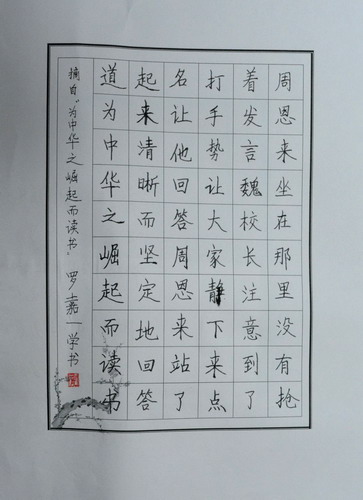 周恩来坐在那里没有抢
着发言魏校长注意到了
打手势让大家静下来点
名让他回答周恩来站了
起来清晰而坚定地回答
道为中华之崛起而读书
摘自“为中华之崛起而读书”罗嘉一学书